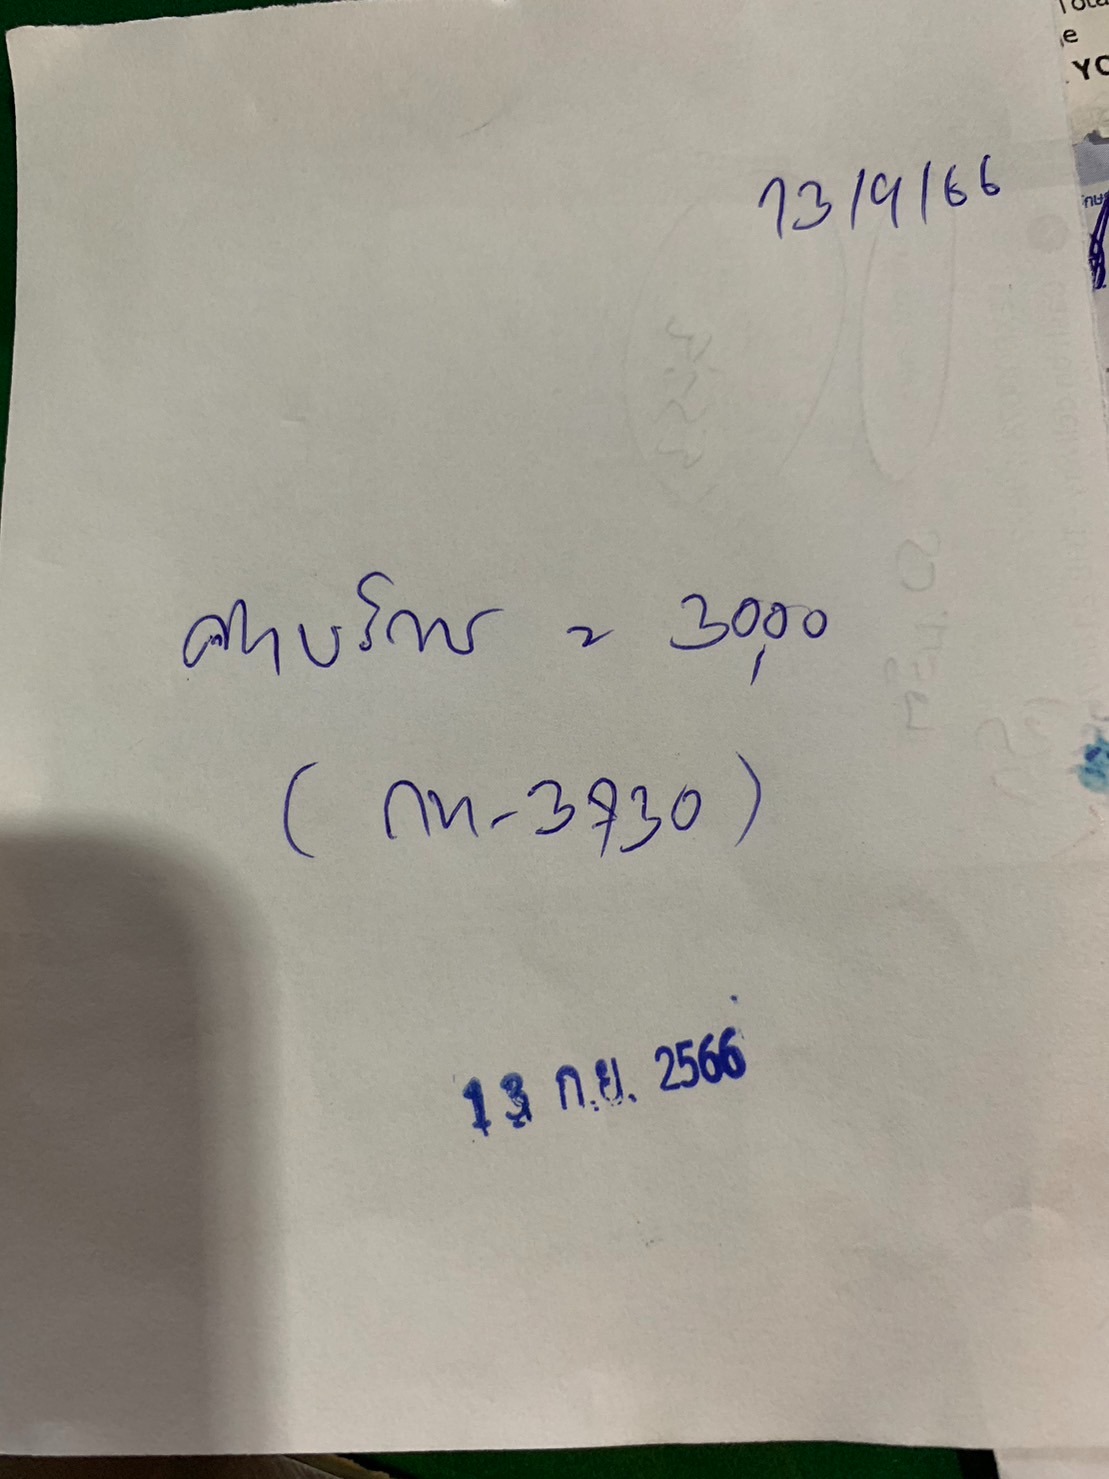 Total
e
YO
13/9/66
ค่าบริการ = 3000
(กท-3730)
13 ก.ย. 2566